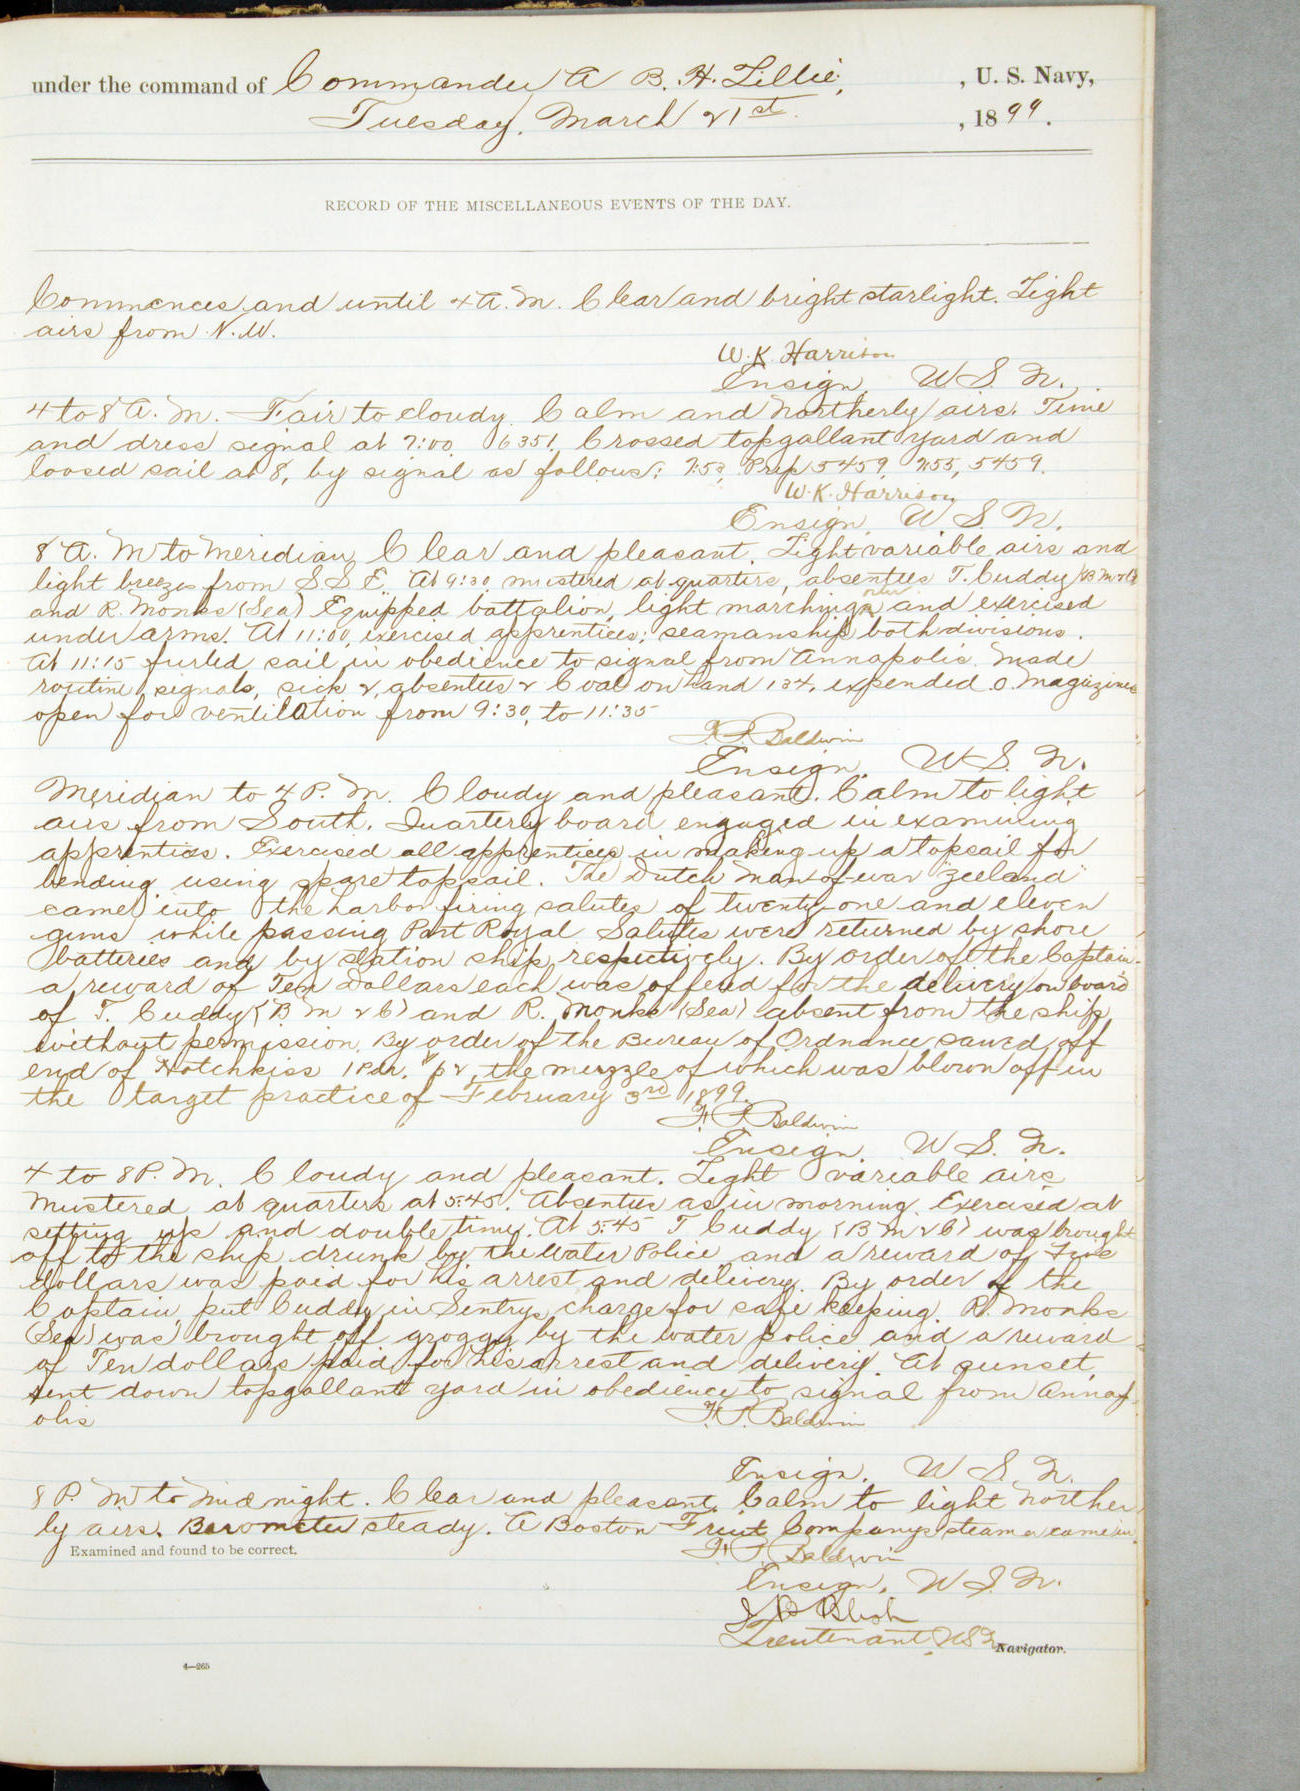 under the command of Commander A. B. H. Lillie, , U. S. Navy,
Tuesday, March 21st , 1899.
RECORD OF THE MISCELLANEOUS EVENTS OF THE DAY.
Commences and until 4 A. M. Clear and bright starlight. Light
airs from N.W.
W. K. Harrison
Ensign, U S. N.
4 to 8 A. M. Fair to cloudy. Calm and northerly airs. Time
and dress signal at 7:00, 6351. Crossed topgallant yard and
loosed sail at 8, by signal as follows: 7:53, Prep 5459, 7:55, 5459.
W. K. Harrison
Ensign, U. S. N.
8 A. M to Meridian Clear and pleasant. Light variable airs and
light breezes from S S E. At 9:30 mustered at quarters, absentees T. Cuddy (B M 2 C)
and R. Monks (Sea) Equipped battalion, light marching order and exercised
under arms. At 11:00, exercised apprentices: seamanship both divisions.
At 11:15 furled sail in obedience to signal from Annapolis. Made
routine signals, sick 2, absentees 2 Coal on hand 134, expended 0. Magazines
open for ventilation from 9:30, to 11:35
F. P. Baldwin
Ensign, U S. N.
Meridian to 4 P. M. Cloudy and pleasant. Calm to light
airs from South. Quarterly board engaged in examining
apprentices. Exercised all apprentices in making up a topsail for
bending using spare topsail. The Dutch man-of-war "Zeeland"
came into the harbor firing salutes of twenty-one and eleven
guns while passing Port Royal Salutes were returned by shore
batteries and by station ship, respectively. By order of the Captain
a reward of Ten Dollars each was offered for the delivery on board
of T. Cuddy (B M 2 C) and R. Monks (Sea) absent from the ship
without permission. By order of the Bureau of Ordnance sawed off
end of Hotchkiss 1 Pdr. the muzzle of which was blown off in
the target practice of February 3rd 1899.
F. P. Baldwin
Ensign. U S. N.
4 to 8 P. M. Cloudy and pleasant. Light variable airs
Mustered at quarters at 5:45. Absentees as in morning. Exercised at
setting ups and double time. At 5:45 T Cuddy (B M 2 C) was brought
off to the ship drunk by the Water Police and a reward of
dollars was paid for his arrest and delivery. By order of the
Captain, put Cuddy in Sentrys charge for safe keeping. R. Monks
(Sea) was brought off groggy by the water police and a reward
of Ten dollars paid for his arrest and delivery. At sunset,
sent down topgallant yard in obedience to signal from Annap-
olis
F. P. Baldwin
Ensign. U S. N.
8 P. M to Midnight. Clear and pleasant. Calm to light norther
ly airs. Barometer steady. A Boston Fruit Companys steamer came in.
F. P. Baldwin
Examined and found to be correct.
Ensign, U S. N.
J B Blish
Lieutenant, U S N Navigator.
4—265